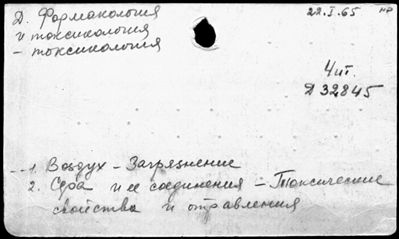 Д. Фармакология
22.I.65
нр
и токсикология
- токсикология
Чит.
Д 32845
1. Воздух - Загрязнение
2. Сера и ее соединения - Токсические
свойства и отравления